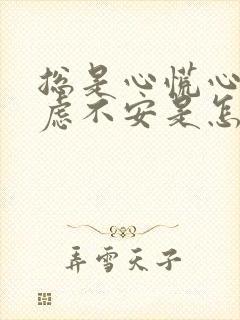 总是心慌心
虑不安是怎
弄雪天子